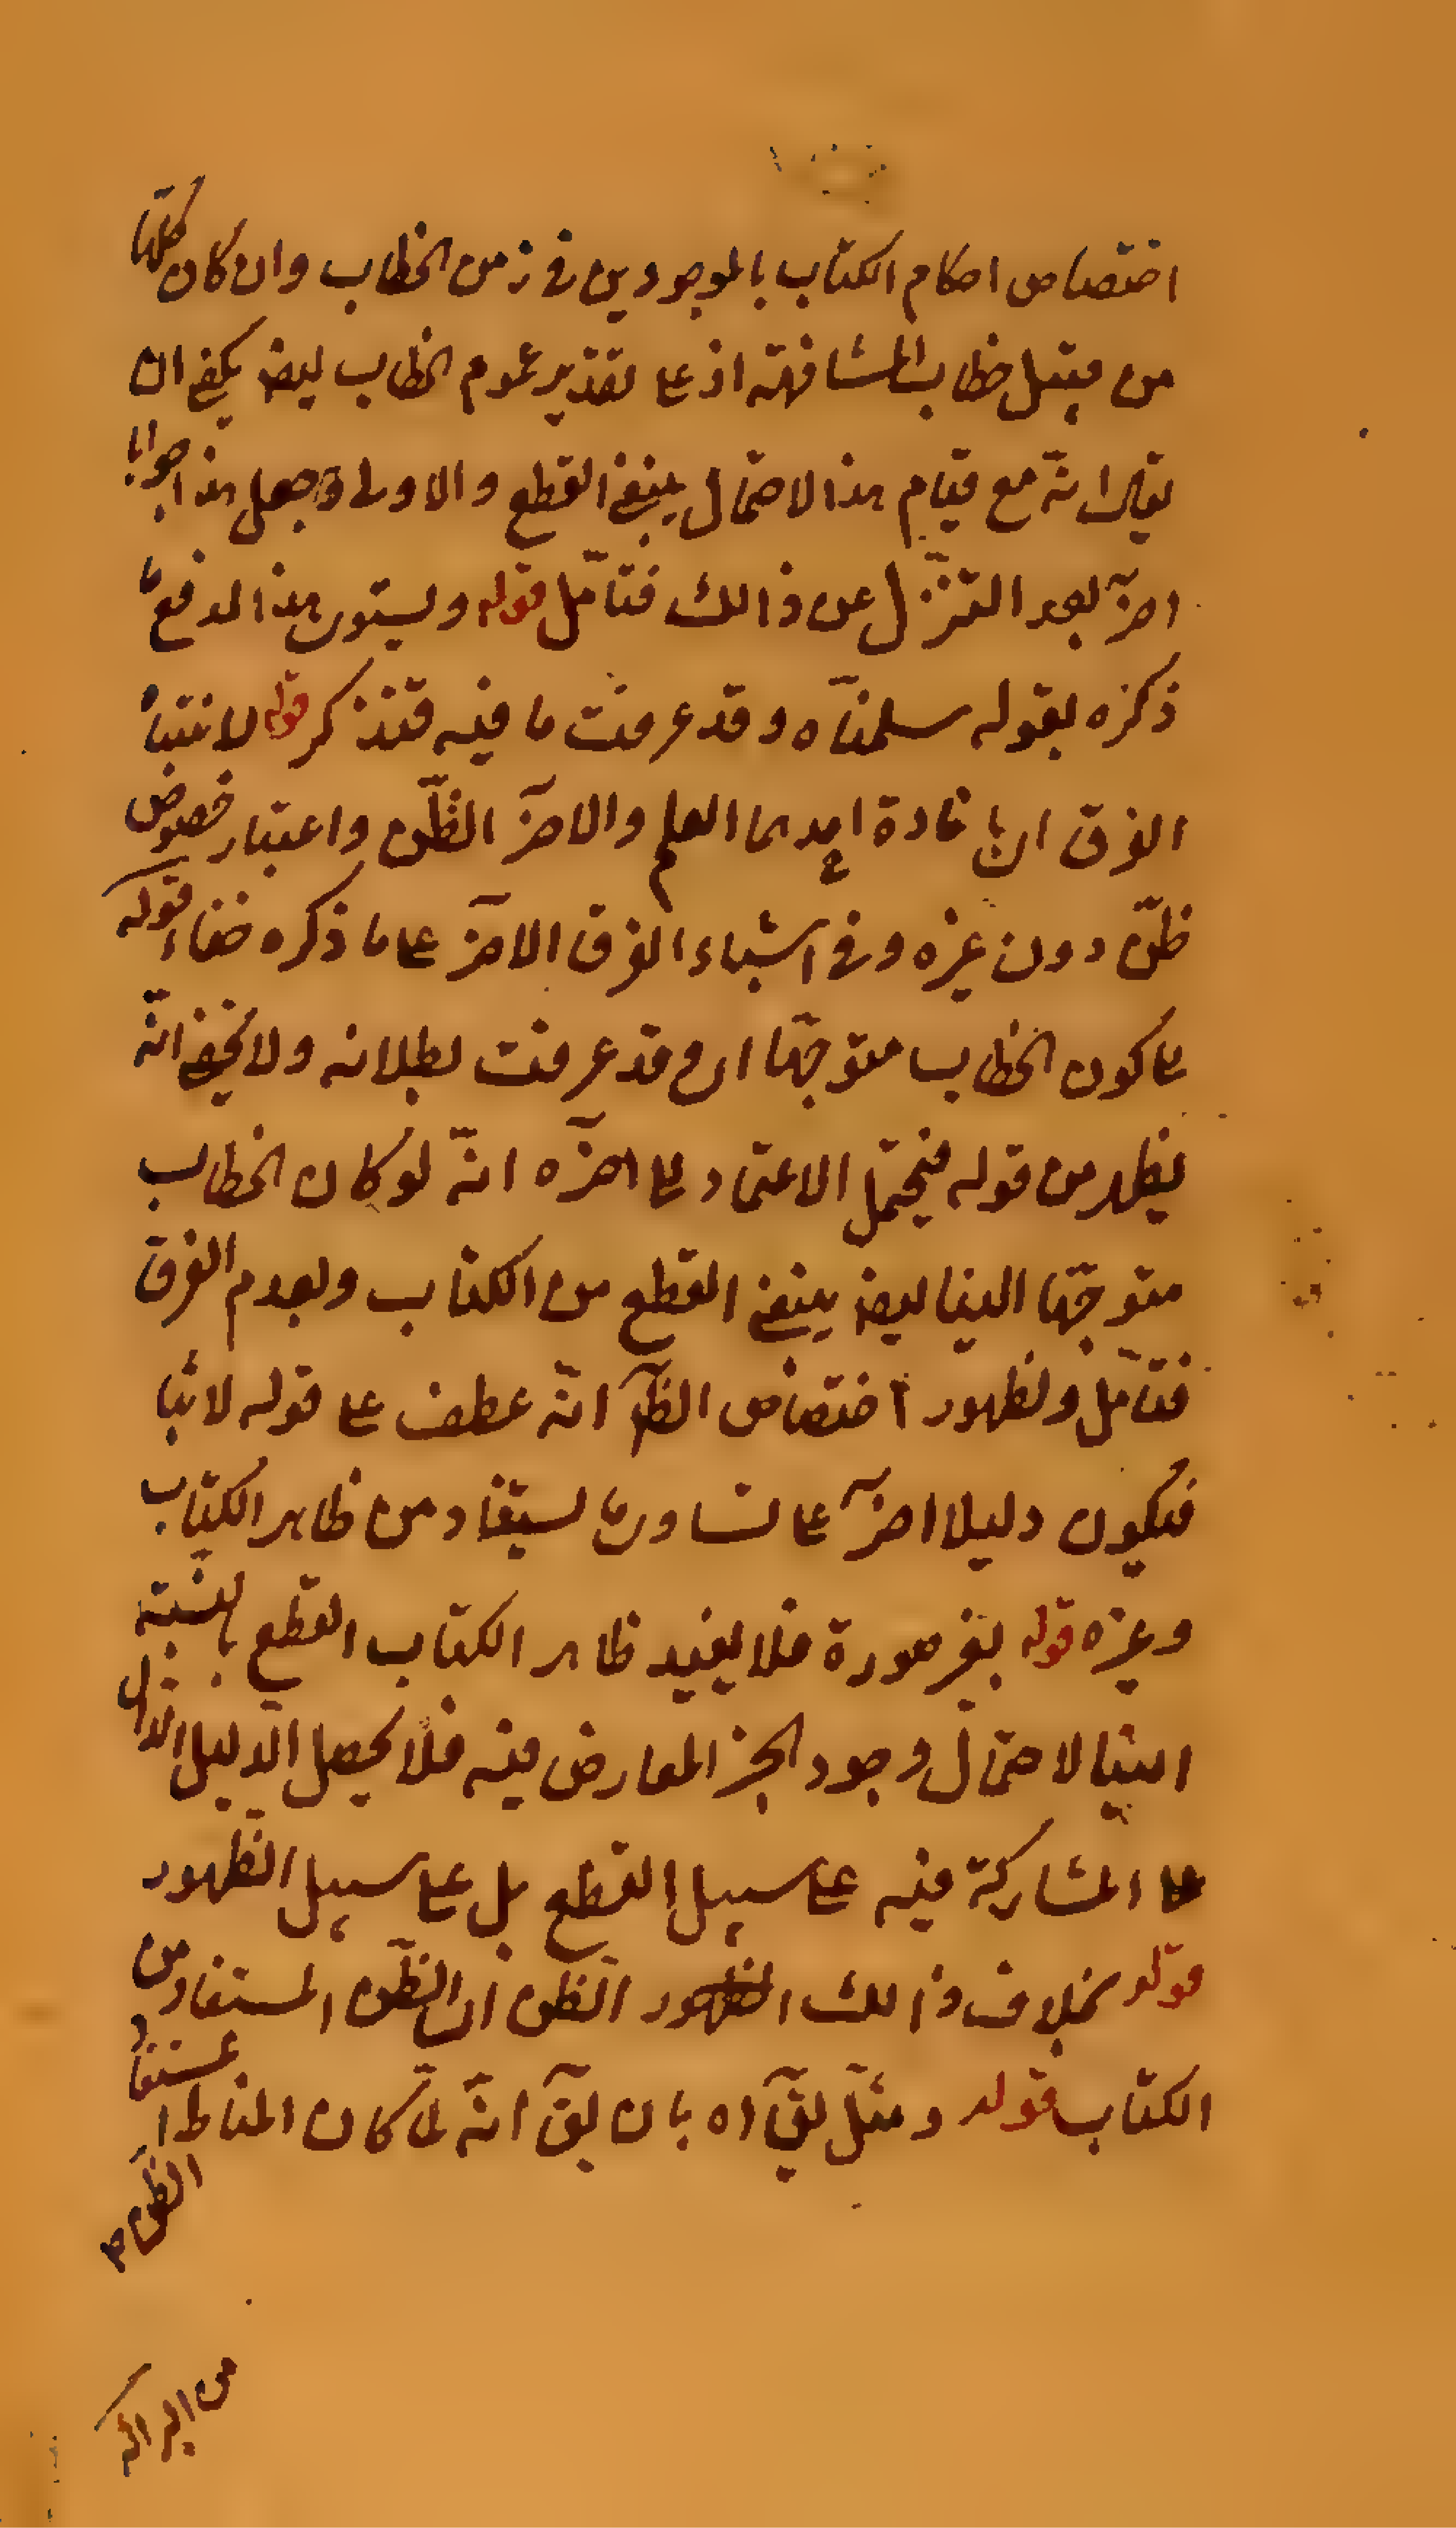 اختصاص احكام الكتاب بالموجودين فى زمن الخطاب وان كان كلها
من قبيل خطاب المشافهة اذ على تقدير عموم الخطاب ايضا يكفى ان
يقال انه مع قيام هذا الاحتمال ينتفى القطع والاولى جعل هذا جوابا
اخر بعد التنزل عن ذالك فتأمل قوله ويستوى هذا لدفع ما
ذكره بقوله سلمناه وقد عرفت ما فيه فتذكر قوله لابتناء
الفرق ان افادة احدهما العلم والاخر الظن واعتبار خصوص
ظن دون غيره وفى ابتناء الفرق الاخر على ما ذكره خفاء قوله
على كون الخطاب متوجها اه وقد عرفت بطلانه ولا يخفى انه
يظهر من قوله فيحتمل الاعتماد على اخره انه لو كان الخطاب
متوجها الينا ايضا ينتفى القطع من الكتاب ولعدم الفرق
فتأمل ولظهور اختصاص الظ انه عطف على قوله لابتنا
فيكون دليلا اخر على تساوى ما يستفاد من ظاهر الكتاب
وغيره قوله بغير صورة فلا يفيد ظاهر الكتاب القطع بالنسبة
الينا لاحتمال وجود الخبر المعارض فيه فلا يحصل الدليل الدال
على المشاركة فيه على سبيل القطع بل على سبيل الظهور
قوله بخلاف ذالك الظهور الظن اى الظن المستفاد من
الكتاب قوله ومثل يق اه بان يق انه لما كان المناط مستفاد
الظن
من البراء